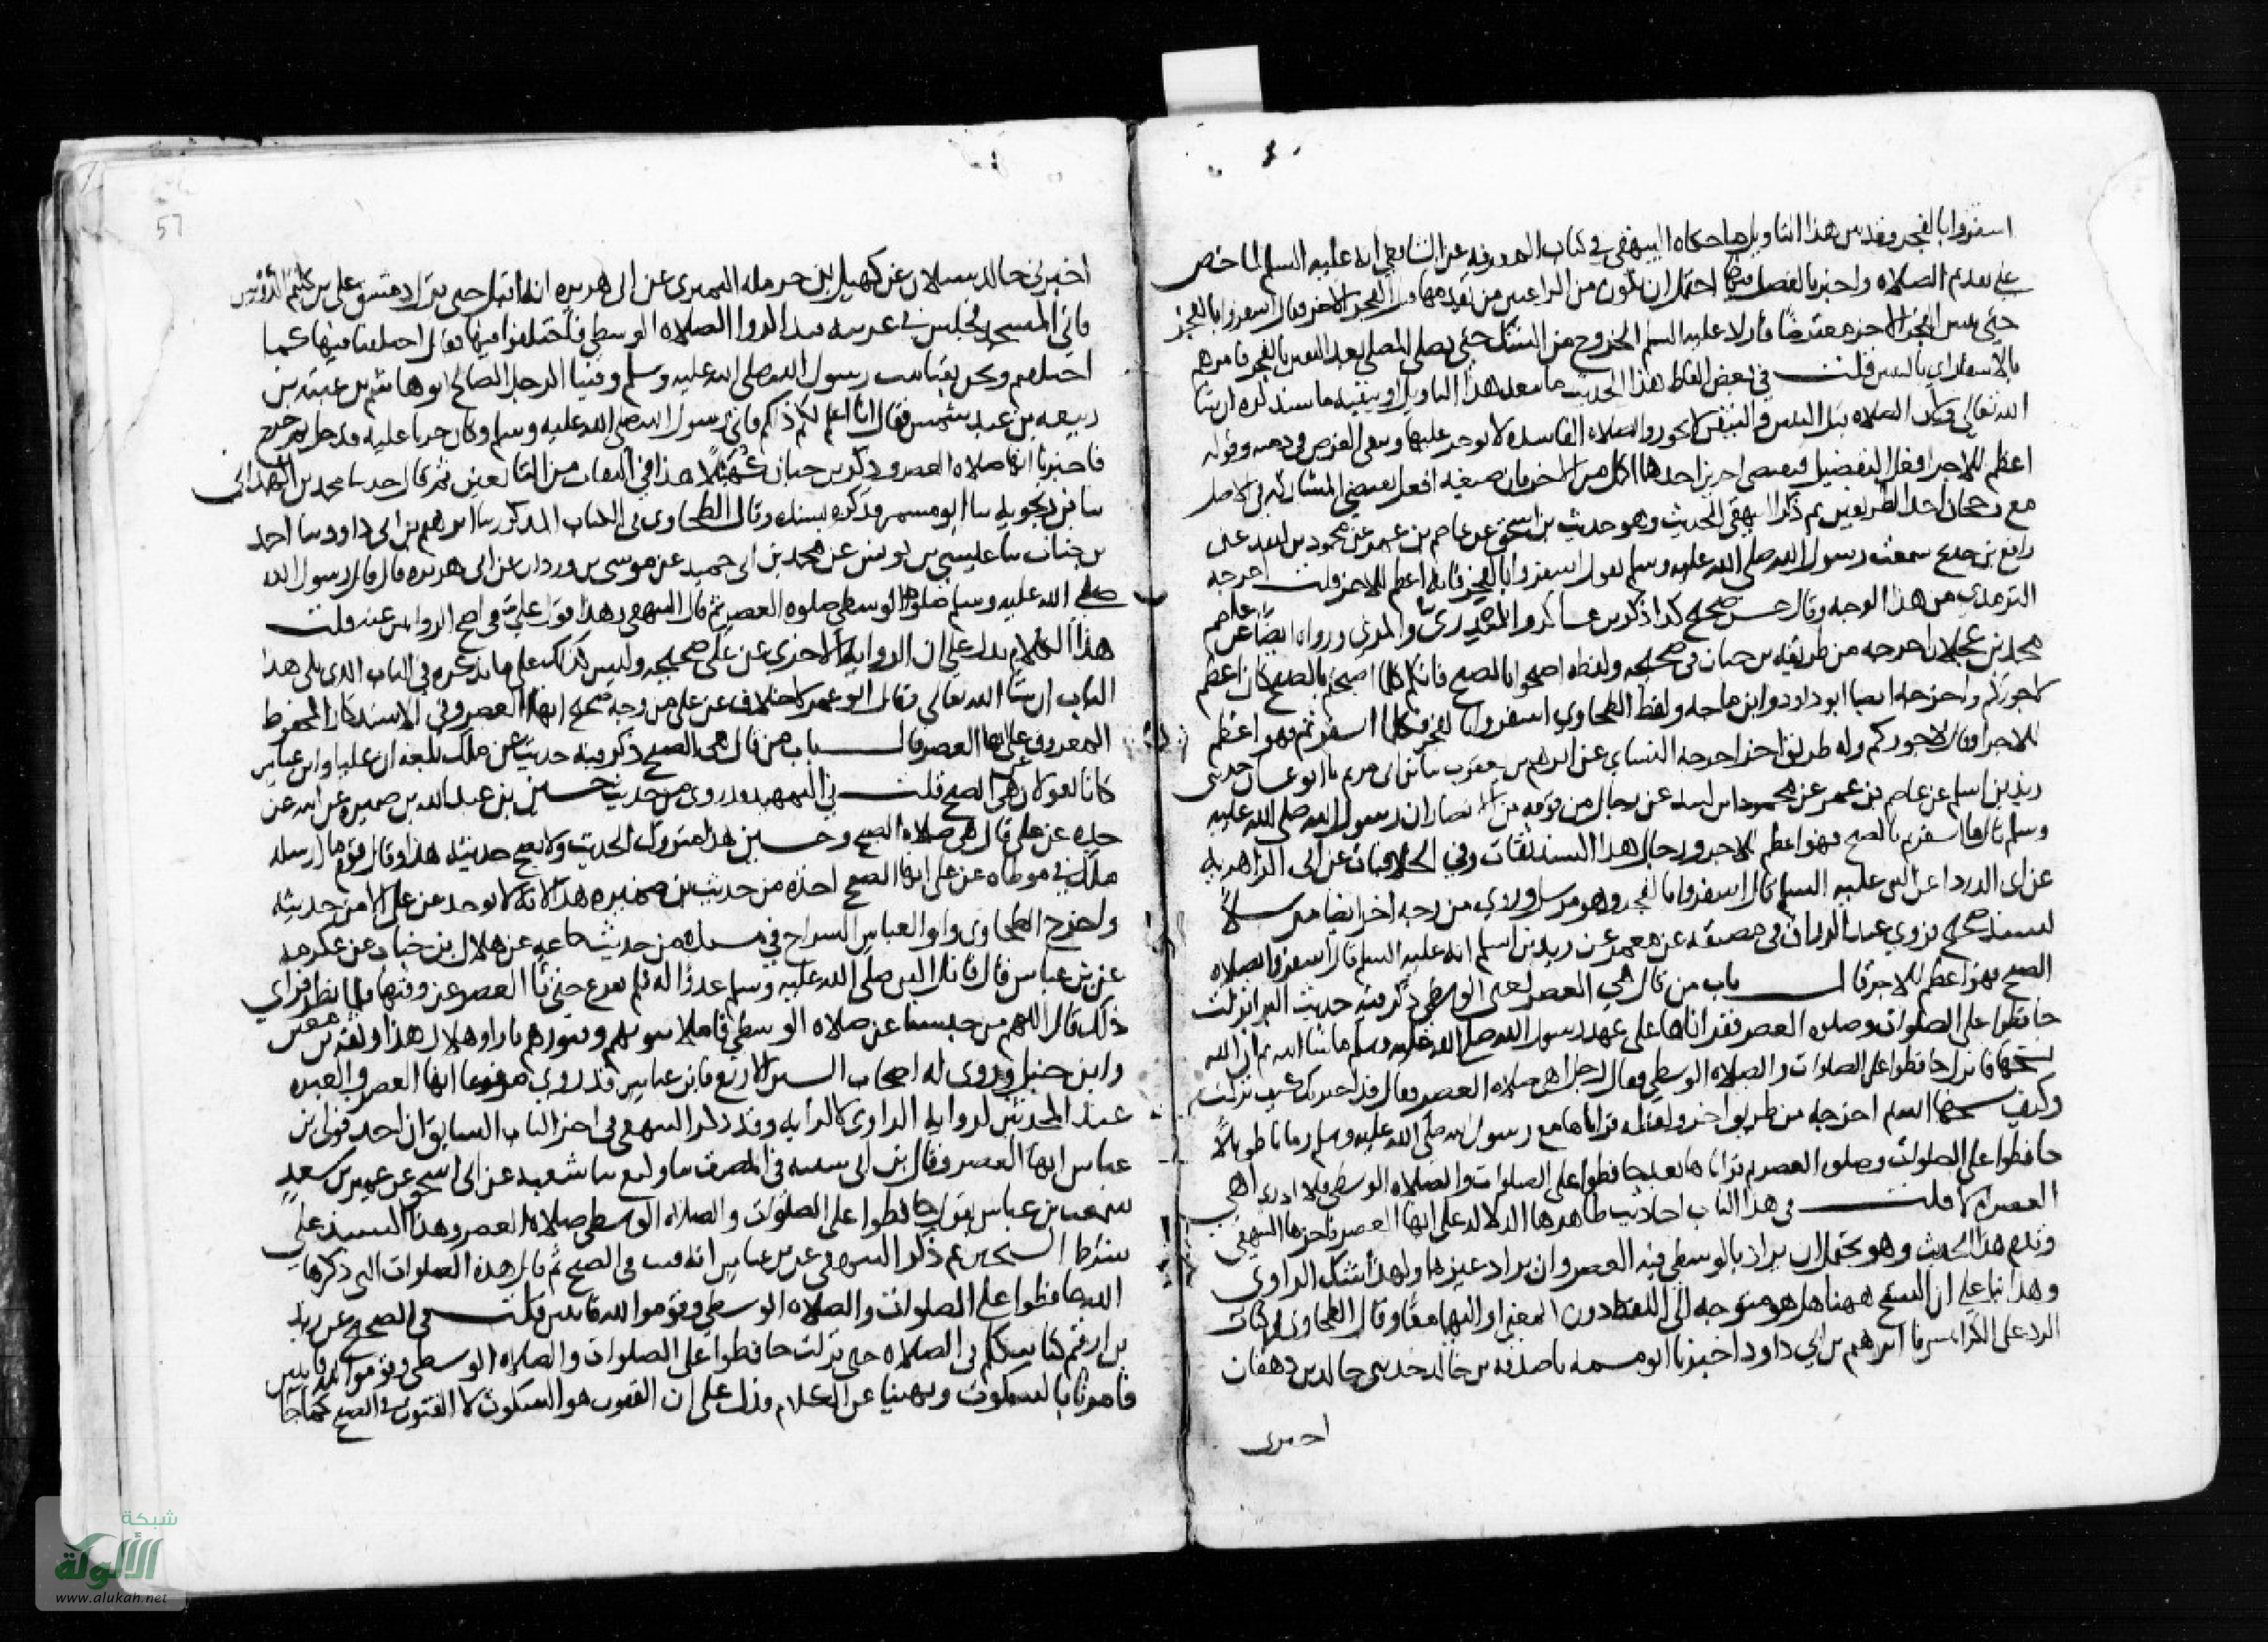 اسفروا بالفجر وقد بين هذا التاويل ما حكاه البيهقي في كتاب المعرفة عن الشافعي انه عليه السلم لما حض
على تقديم الصلاه واخبر بالفضل فيها احتمل ان يكون من الراغبين من يقدمها قبل الفجر الاخر فقال اسفروا بالفجر
حتى يتبين الفجر الاخر معترضا فاراد عليه السلم الخروج من الشك حتى يصلي المصلي بعد اليقين بالفجر فامرهم
بالاسفار اي بالتبين قلت في بعض الفاظ هذا الحديث ما يبعد هذا التاويل او ينفيه ما سنذكره ان شا
الله تعالى وايضا الصلاه قبل التبين والتيقن لا تجوز والصلاه الفاسدة لا يوجر عليها ويبقى الفرض في ذمته وقوله
اعظم للاجر افعل التفضيل فيقتضي اجرين احدهما اكمل من الاخر فان صيغه افعل تقتضي المشاركه في الاصل
مع رجحان احد الطرفين ثم ذكر البيهقي الحديث وهو حديث بن اسحق عن عاصم بن عمر عن محمود بن لبيد عن
رافع بن خديج سمعت رسول الله صلى الله عليه وسلم يقول اسفروا بالفجر فانه اعظم للاجر قلت اخرجه
الترمذي من هذا الوجه وقال حسن صحيح كذا ذكر بن عساكر والمنذري والمزي ورواه ايضا عن عاصم
محمد بن عجلان اخرجه من طريقه بن حبان في صحيحه ولفظه اصبحوا بالصبح فانكم كلما اصبحتم بالصبح كان اعظم
لاجوركم واخرجه ايضا ابو داود وابن ماجه ولفظ الطحاوي اسفروا بالفجر فكلما اسفرتم فهو اعظم
للاجر او قال لاجوركم وله طريق اخر اخرجه النساي عن ابرهيم بن يعقوب ثنا بن ابي مريم نا ابو غسان حدثني
زيد بن اسلم عن عاصم بن عمر عن محمود بن لبيد عن رجال من قومه من الانصار ان رسول الله صلى الله عليه
وسلم قال ما اسفرتم بالصبح فهو اعظم للاجر ورجال هذا السند ثقات وفي الخلافيات عن ابي الزاهريه
عن ابي الدردا عن النبي عليه السلم قال اسفروا بالفجر وهو مرسل وروي من وجه اخر ايضا مرسلا
بسند صحيح فروي عبد الرزاق في مصنفه عن معمر عن زيد بن اسلم انه عليه السلم قال اسفروا بصلاه
الصبح فهو اعظم للاجر قال باب من قال هي العصر يعني الوسطى ذكر فيه حديث البرا نزلت
حافظوا على الصلوات وصلاه العصر فقراناها على عهد رسول الله صلى الله عليه وسلم ما شا الله ثم ان الله
نسخها فانزل حافظوا على الصلوات والصلاه الوسطى فقال رجل اهي صلاه العصر فقال قد اخبرتك كيف نزلت
وكيف نسخها الله ثم اخرجه من طريق اخر ولفظه قراناها مع رسول الله صلى الله عليه وسلم زمانا طويلا
حافظوا على الصلوات وصلاه العصر ثم قراناها بعد حافظوا على الصلوات والصلاه الوسطى فلا ادري اهي
العصر ام لا قلت في هذا الباب احاديث ظاهرها الدلاله على انها العصر فاخرها البيهقي
وقدم هذا الحديث وهو يحتمل ان يراد بالوسطى فيه العصر وان يراد غيرها ولهذا شك الراوي
وهذا بنا على ان النسخ ههنا هل هو متوجه الى اللفظ دون المعنى او اليهما معا وقال الطحاوي في كتاب
الرد على الكرابيسي نا ابرهيم بن ابي داود اخبرنا ابو مسهر نا صدقه بن خالد حدثني خالد بن دهقان
اخبرني
57
اخبرني خالد سبلان عن كهيل بن حرمله النمري عن ابي هريره انه اقبل حتى نزل دمشق على بن كلثم الدوسي
فاتى المسجد فجلس في غربيه فتذاكروا الصلاه الوسطى فاختلفوا فيها فقال اختلفنا فيها كما
اختلفتم ونحن بفنا بيت رسول الله صلى الله عليه وسلم وفينا الرجل الصالح ابو هاشم بن عتبه بن
ربيعه بن عبد شمس فقال انا اعلم لكم ذلكم فاتى رسول الله صلى الله عليه وسلم وكان جريا عليه فدخل ثم خرج
فاخبرنا انها صلاه العصر وذكر بن حبان كهيلا هذا في الثقات من التابعين ثم قال حدثنا محمد بن الهمداني
ثنا بن زنجويه ثنا ابو مسهر فذكره بسنده وقال الطحاوي في الكتاب المذكور ثنا ابرهيم بن ابي داود ثنا احمد
بن جناب ثنا عيسى بن يونس عن محمد بن ابي حميد عن موسى بن وردان عن ابي هريره قال قال رسول الله
صلى الله عليه وسلم صلوه الوسطى صلوه العصر ثم قال البيهقي وهذا قول علي في اصح الروايتين عنه قلت
هذا الكلام يدل على ان الروايه الاخرى عن علي صحيحه وليس كذلك على ما نذكره في الباب الذي يلي هذا
الباب ان شا الله تعالى وقال ابو عمر لا خلاف عن علي من وجه صحيح انها العصر وفي الاستذكار المحفوظ
المعروف عن علي انها العصر قال باب من قال هي الصبح ذكر فيه حديثا عن ملك بلغه ان عليا وابن عباس
كانا يقولان هي الصبح قلت في التمهيد وقد روي من حديث حسين بن عبد الله بن ضميره عن ابيه عن
جده عن علي قال هي صلاه الصبح وحسين هذا متروك الحديث ولا يصح حديثه هذا وقال قوم ما ارسله
ملك في موطاه عن علي انها الصبح اخذه من حديث بن ضميره هذا لانه لا يوجد عن علي الا من حديثه
واخرج الطحاوي وابو العباس السراج في مسنده من حديث جماعه عن هلال بن خباب عن عكرمه
عن بن عباس قال قاتل النبي صلى الله عليه وسلم عدوا له فلم يفرغ حتى اخر العصر عن وقتها فلما نظر فراى
ذلك قال اللهم من حبسنا عن صلاه الوسطى فاملا بيوتهم وقبورهم نارا وهلال هذا وثقه بن معين
وابن حنبل وروى له اصحاب السنن الاربع فابن عباس قد روي مرفوعا انها العصر والعبره
عند المحدثين لروايه الراوي لا لرايه وقد ذكر البيهقي في اخر الباب السابق ان احد قولي ابن
عباس انها العصر وقال بن ابي شيبه في المصنف ثنا وكيع ثنا شعبه عن ابي اسحق عن عمير بن سعد
سمعت بن عباس يقول حافظوا على الصلوات والصلاه الوسطى صلاه العصر وهذا السند على
شرط الشيخين ثم ذكر البيهقي عن بن عباس انه قنت في الصبح ثم قال هذه الصلوات التي ذكرها
الله حافظوا على الصلوات والصلاه الوسطى وقوموا لله قانتين قلت في الصحيح عن زيد
بن ارقم كنا نتكلم في الصلاه حتى نزلت حافظوا على الصلوات والصلاه الوسطى وقوموا لله قانتين
فامرنا بالسكوت ونهينا عن الكلام فدل على ان القنوت هو السكوت لا القنوت في الصبح كما جا
شبكة
الألوكة
www.alukah.net